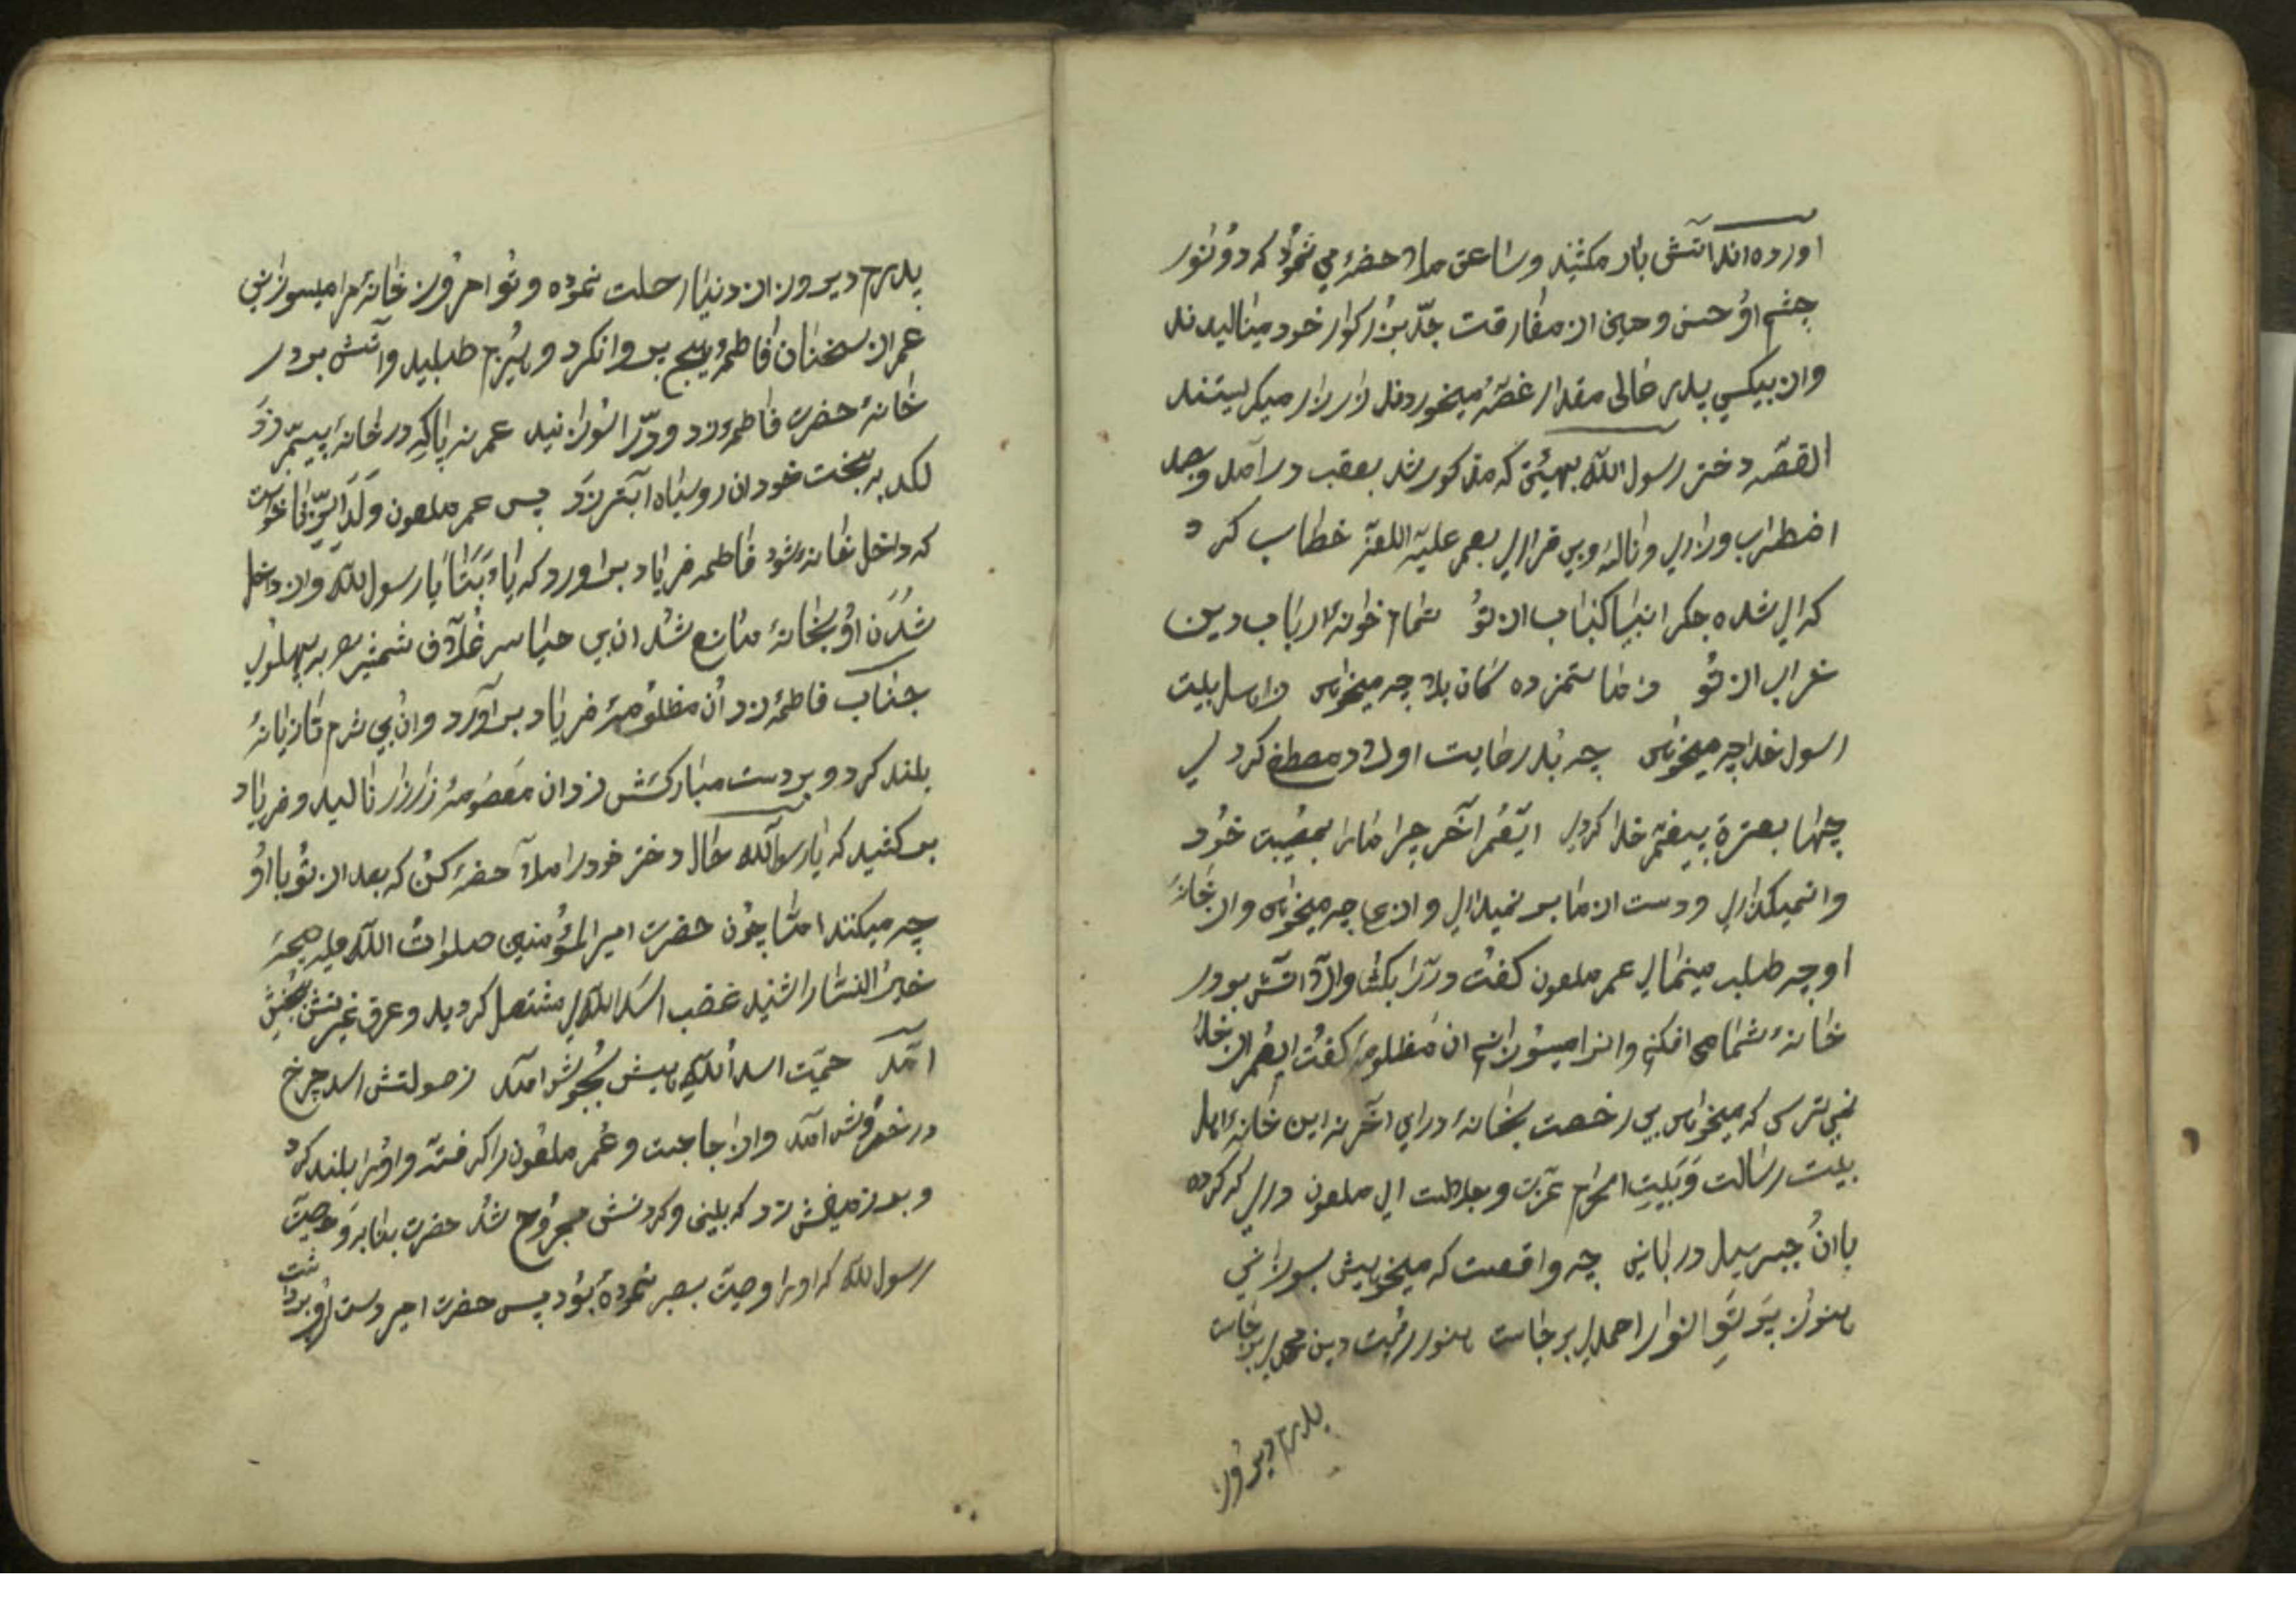 اورده اند آتش بار مکشید و ساعتی ملاحضه می نمود که دو نور
چشم او حسن و حسین از مفارقت جدّ بزرکوار خود مینالیدند
و از بیکسی پدر خالی مقدار غصّه میخوردند زار زار میکریستند
القصّه دختر رسول الله بهیئتی که مذکور شد بعقب در آمد وبصد
اضطراب وزاری و ناله وبی قراری بعمر علیه اللعنة خطاب کرد
که ای شده جکر انبیا کباب از تو تمام خانهٔ ارباب دین
خراب از تو ز ما ستمزده کان بلا چه میخواهی ز اهل بیت
رسول خدا چه میخواهی چه بد رعایت اولاد مصطفی کردی
چها بعترة پیغمبر خدا کردی ایعمر آخر چرا مارا بمصیبت خود
وا نمیکذاری ودست از ما بر نمیداری و از ما چه میخواهی واز خانهٔ
ما چه طلب مینمائی عمر ملعون کفت در را بکشا والا آتش بر در
خانهٔ شما می افکنم وانرا میسوزانم ان مظلومه کفت ایعمر از خدا
نمی ترسی که میخواهی بی رخصت بخانهٔ من درایی آخر نه این خانهٔ اهل
بیت رسالت وَبَیت احترام عزت و جلالت ای ملعون دری که کرده
باان جبرییل دربانی چه واقعست که میخواهیش بسوزانی
هنوز پرتو انوار احمدی برجاست هنوز رتبت دین محمدی برجاست
پدرم دیروز
پدرم دیروز از دنیا رحلت نموده وتو امروز خانهٔ مرا میسوزانی
عمر از سخنان فاطمه هیچ پروا نکرد و هیزم طلبید و آتش بر در
خانهٔ حضرت فاطمه زد و درّ را سوزانید عمر نه پا که در خانهٔ پیمبر زَد
لکد به بخت خود ان روسیاه ابتر زَد پس عمر ملعون وَلَدَ الزِّنا خواست
که داخل خانه شود فاطمه فریاد برآورد که یا اَبَتَا یا رسول الله و از داخل
شُدَن او بخانه مانع شد ان بی حیا سر غلاف شمشیر به پهلوی
جناب فاطمه زد اُن مظلومه فریاد برآورد و ان بی شرم تازیانهٔ
بلند کرد و بر دست مبارکش زد ان معصومه زار زار نالید و فریاد
بر کشید که یا رسول الله حال دختر خود را ملاحضه کن که بعد از تو با او
چه میکنند امّا چون حضرت امیر المؤمنین صلوات الله علیه صیحهٔ
خیر النّسا را شنید غضب اسد اللهی مشتعل کردید و عرق غیرتش بجنبش
آمد حمیّت اسد اللهیش بجوش آمد ز صولتش اسد چرخ
در خروش آمد و از جا جست و عمر ملعون را کرفته و او را بلند کرد
و بر زمینش زد که بینی و کردنش مجروح شد حضرت بنابر وَصیّت
رسول الله که او را وصیّت بصبر نموده بود پس حضرت امیر دست ازو برداشت